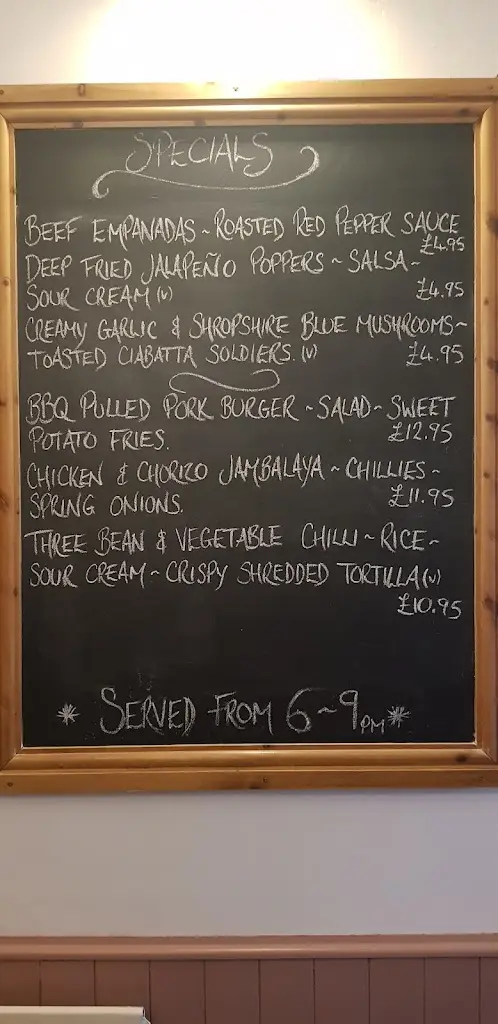 SPECIALS
BEEF EMPANADAS ~ ROASTED RED PEPPER SAUCE
£4.95
DEEP FRIED JALAPEÑO POPPERS ~ SALSA ~
SOUR CREAM (V) £4.95
CREAMY GARLIC & SHROPSHIRE BLUE MUSHROOMS ~
TOASTED CIABATTA SOLDIERS. (V) £4.95
BBQ PULLED PORK BURGER ~ SALAD ~ SWEET
POTATO FRIES. £12.95
CHICKEN & CHORIZO JAMBALAYA ~ CHILLIES ~
SPRING ONIONS. £11.95
THREE BEAN & VEGETABLE CHILLI ~ RICE ~
SOUR CREAM ~ CRISPY SHREDDED TORTILLA (V)
£10.95
* SERVED FROM 6 ~ 9PM *